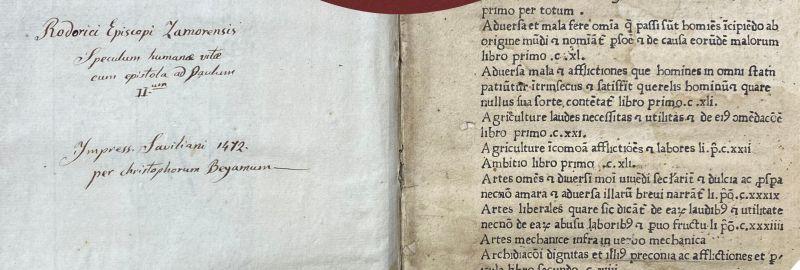 Roderici Episcopi Zamorensis
Speculum humanæ vitæ
cum epistola ad Paulum
II.um
Impress. Saviliani 1472.
per christophorum Beyamum
primo per totum .
Aduersa et mala fere om̄ia q̄ passi sūt homiēs īcipiēdo ab
origine mūdi ⁊ nomiāt̄ ꝑsoē ⁊ de causa eorūdē malorum
libro primo .c.xl.
Aduersa mala ⁊ afflictiones que homines in omni statu
patiūtur ītrinsecus ⁊ satisfit querelis hominū ⁊ quare
nullus sua sorte, contētat̄ libro primo.c.xli.
Agriculture laudes necessitas ⁊ utilitas ⁊ de ei9 om̄edacōe
libro primo .c.xxi.
Agriculture īcomoā afflictiōes ⁊ labores li.p̄.c.xxii
Ambitio libro primo .c.xli.
Artes omēs ⁊ diuersi moī uiuēdi seclariē ⁊ dulcia ac ꝓspa
necnō amara ⁊ aduersa illarū breui narrāt̄ li.p̄o.c.xxix
Artes liberales quare sic dicāt̄ de eaꝝ laudib9 ⁊ utilitate
necnō de eaꝝ abusu laborib9 ⁊ ꝑuo fructu li p̄o.c.xxxiiii
Artes mechanice infra in uerbo mechanica
Archidiacōi dignitas et illi9 preconia ac afflictiones et ꝑ-
libro secundo .c.